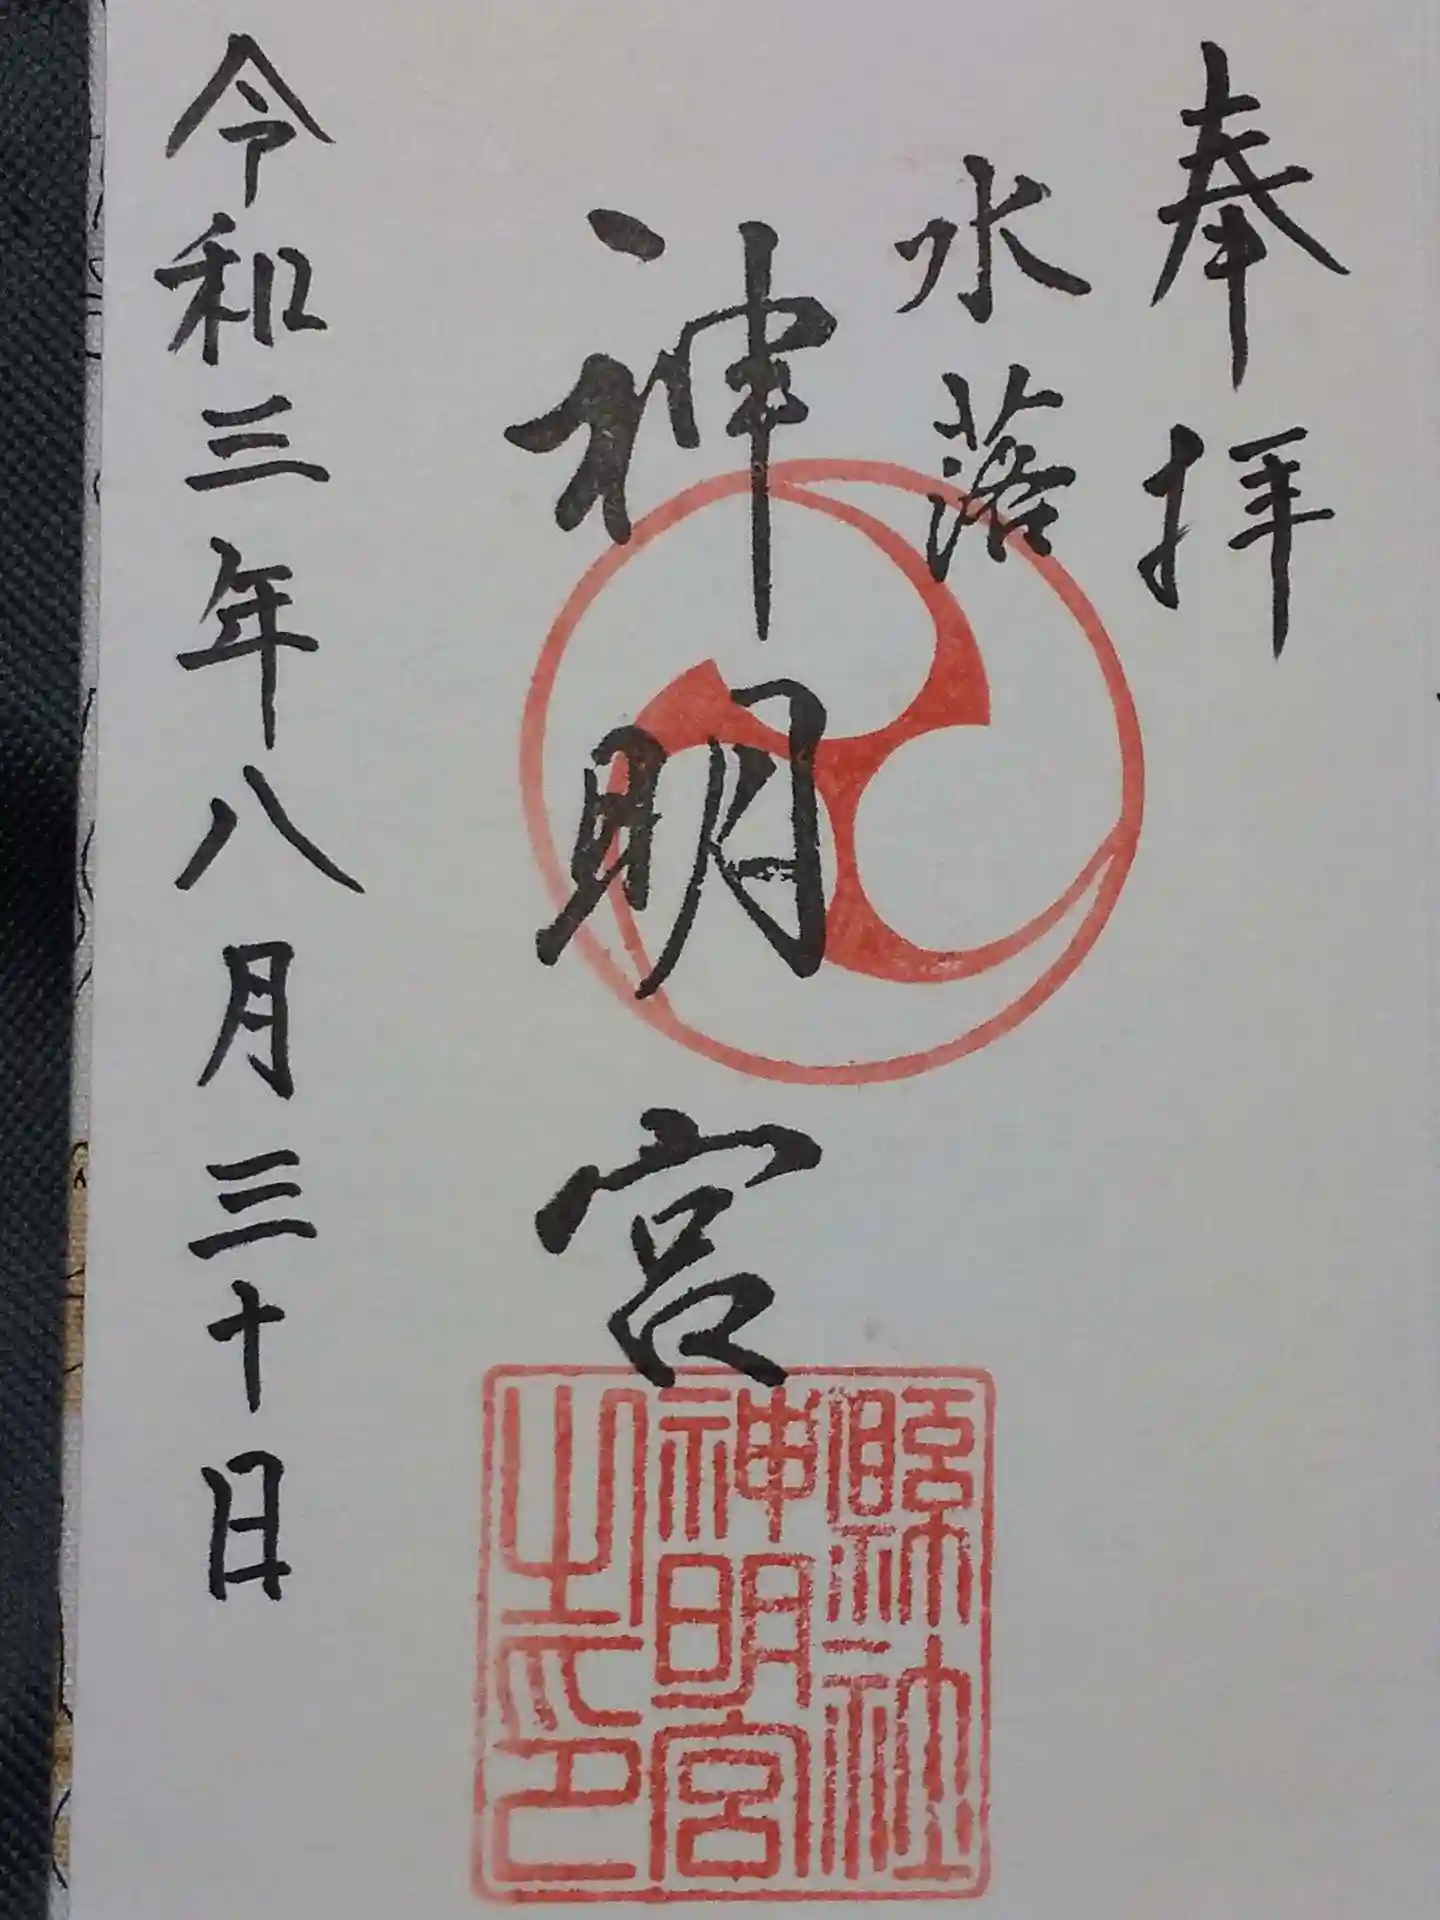 奉拝
水落
神明宮
縣社
神明宮
之印
令和三年八月三十日